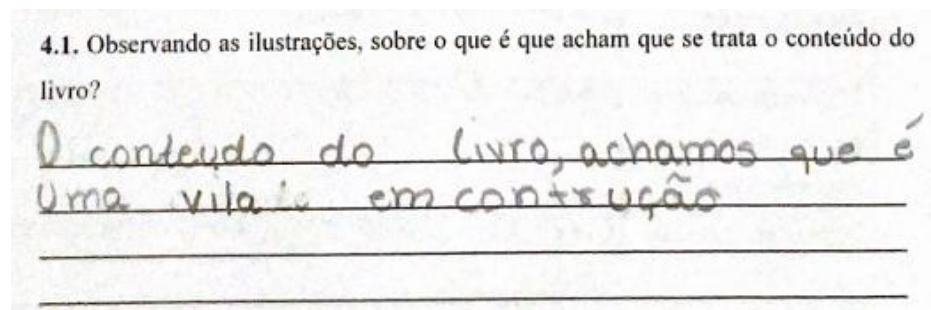 4.1. Observando as ilustrações, sobre o que é que acham que se trata o conteúdo do
livro?
O conteudo do livro, achamos que é
Uma vila em contrução